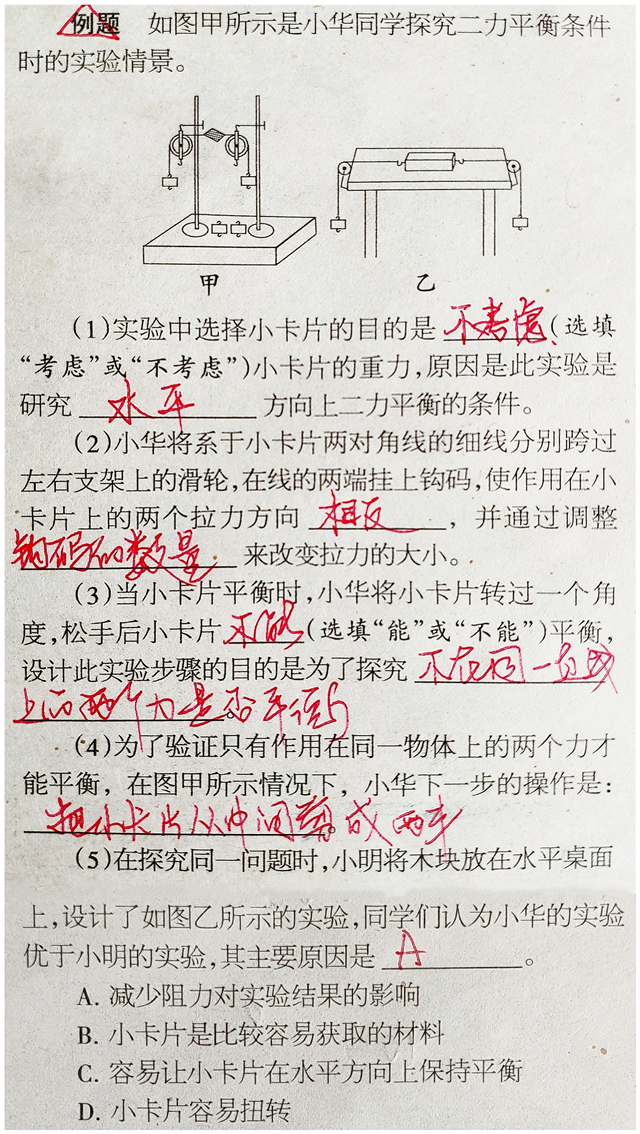 例题 如图甲所示是小华同学探究二力平衡条件
时的实验情景。
甲 乙
(1)实验中选择小卡片的目的是 不考虑 (选填
“考虑”或“不考虑”)小卡片的重力,原因是此实验是
研究 水平 方向上二力平衡的条件。
(2)小华将系于小卡片两对角线的细线分别跨过
左右支架上的滑轮,在线的两端挂上钩码,使作用在小
卡片上的两个拉力方向 相反 ,并通过调整
钩码的数量 来改变拉力的大小。
(3)当小卡片平衡时,小华将小卡片转过一个角
度,松手后小卡片 不能 (选填“能”或“不能”)平衡,
设计此实验步骤的目的是为了探究 不在同一直线
上的两个力是否平衡 。
(4)为了验证只有作用在同一物体上的两个力才
能平衡,在图甲所示情况下,小华下一步的操作是:
把小卡片从中间剪成两半 。
(5)在探究同一问题时,小明将木块放在水平桌面
上,设计了如图乙所示的实验,同学们认为小华的实验
优于小明的实验,其主要原因是 A 。
A. 减少阻力对实验结果的影响
B. 小卡片是比较容易获取的材料
C. 容易让小卡片在水平方向上保持平衡
D. 小卡片容易扭转